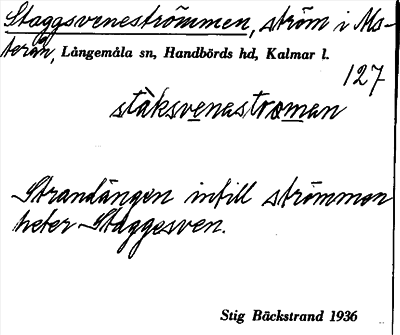 Staggsveneströmmen, ström i Als-
terån, Långemåla sn, Handbörds hd, Kalmar l.
127
stàksvenastroman
Strandängen intill strömmen
heter Staggesven.
Stig Bäckstrand 1936